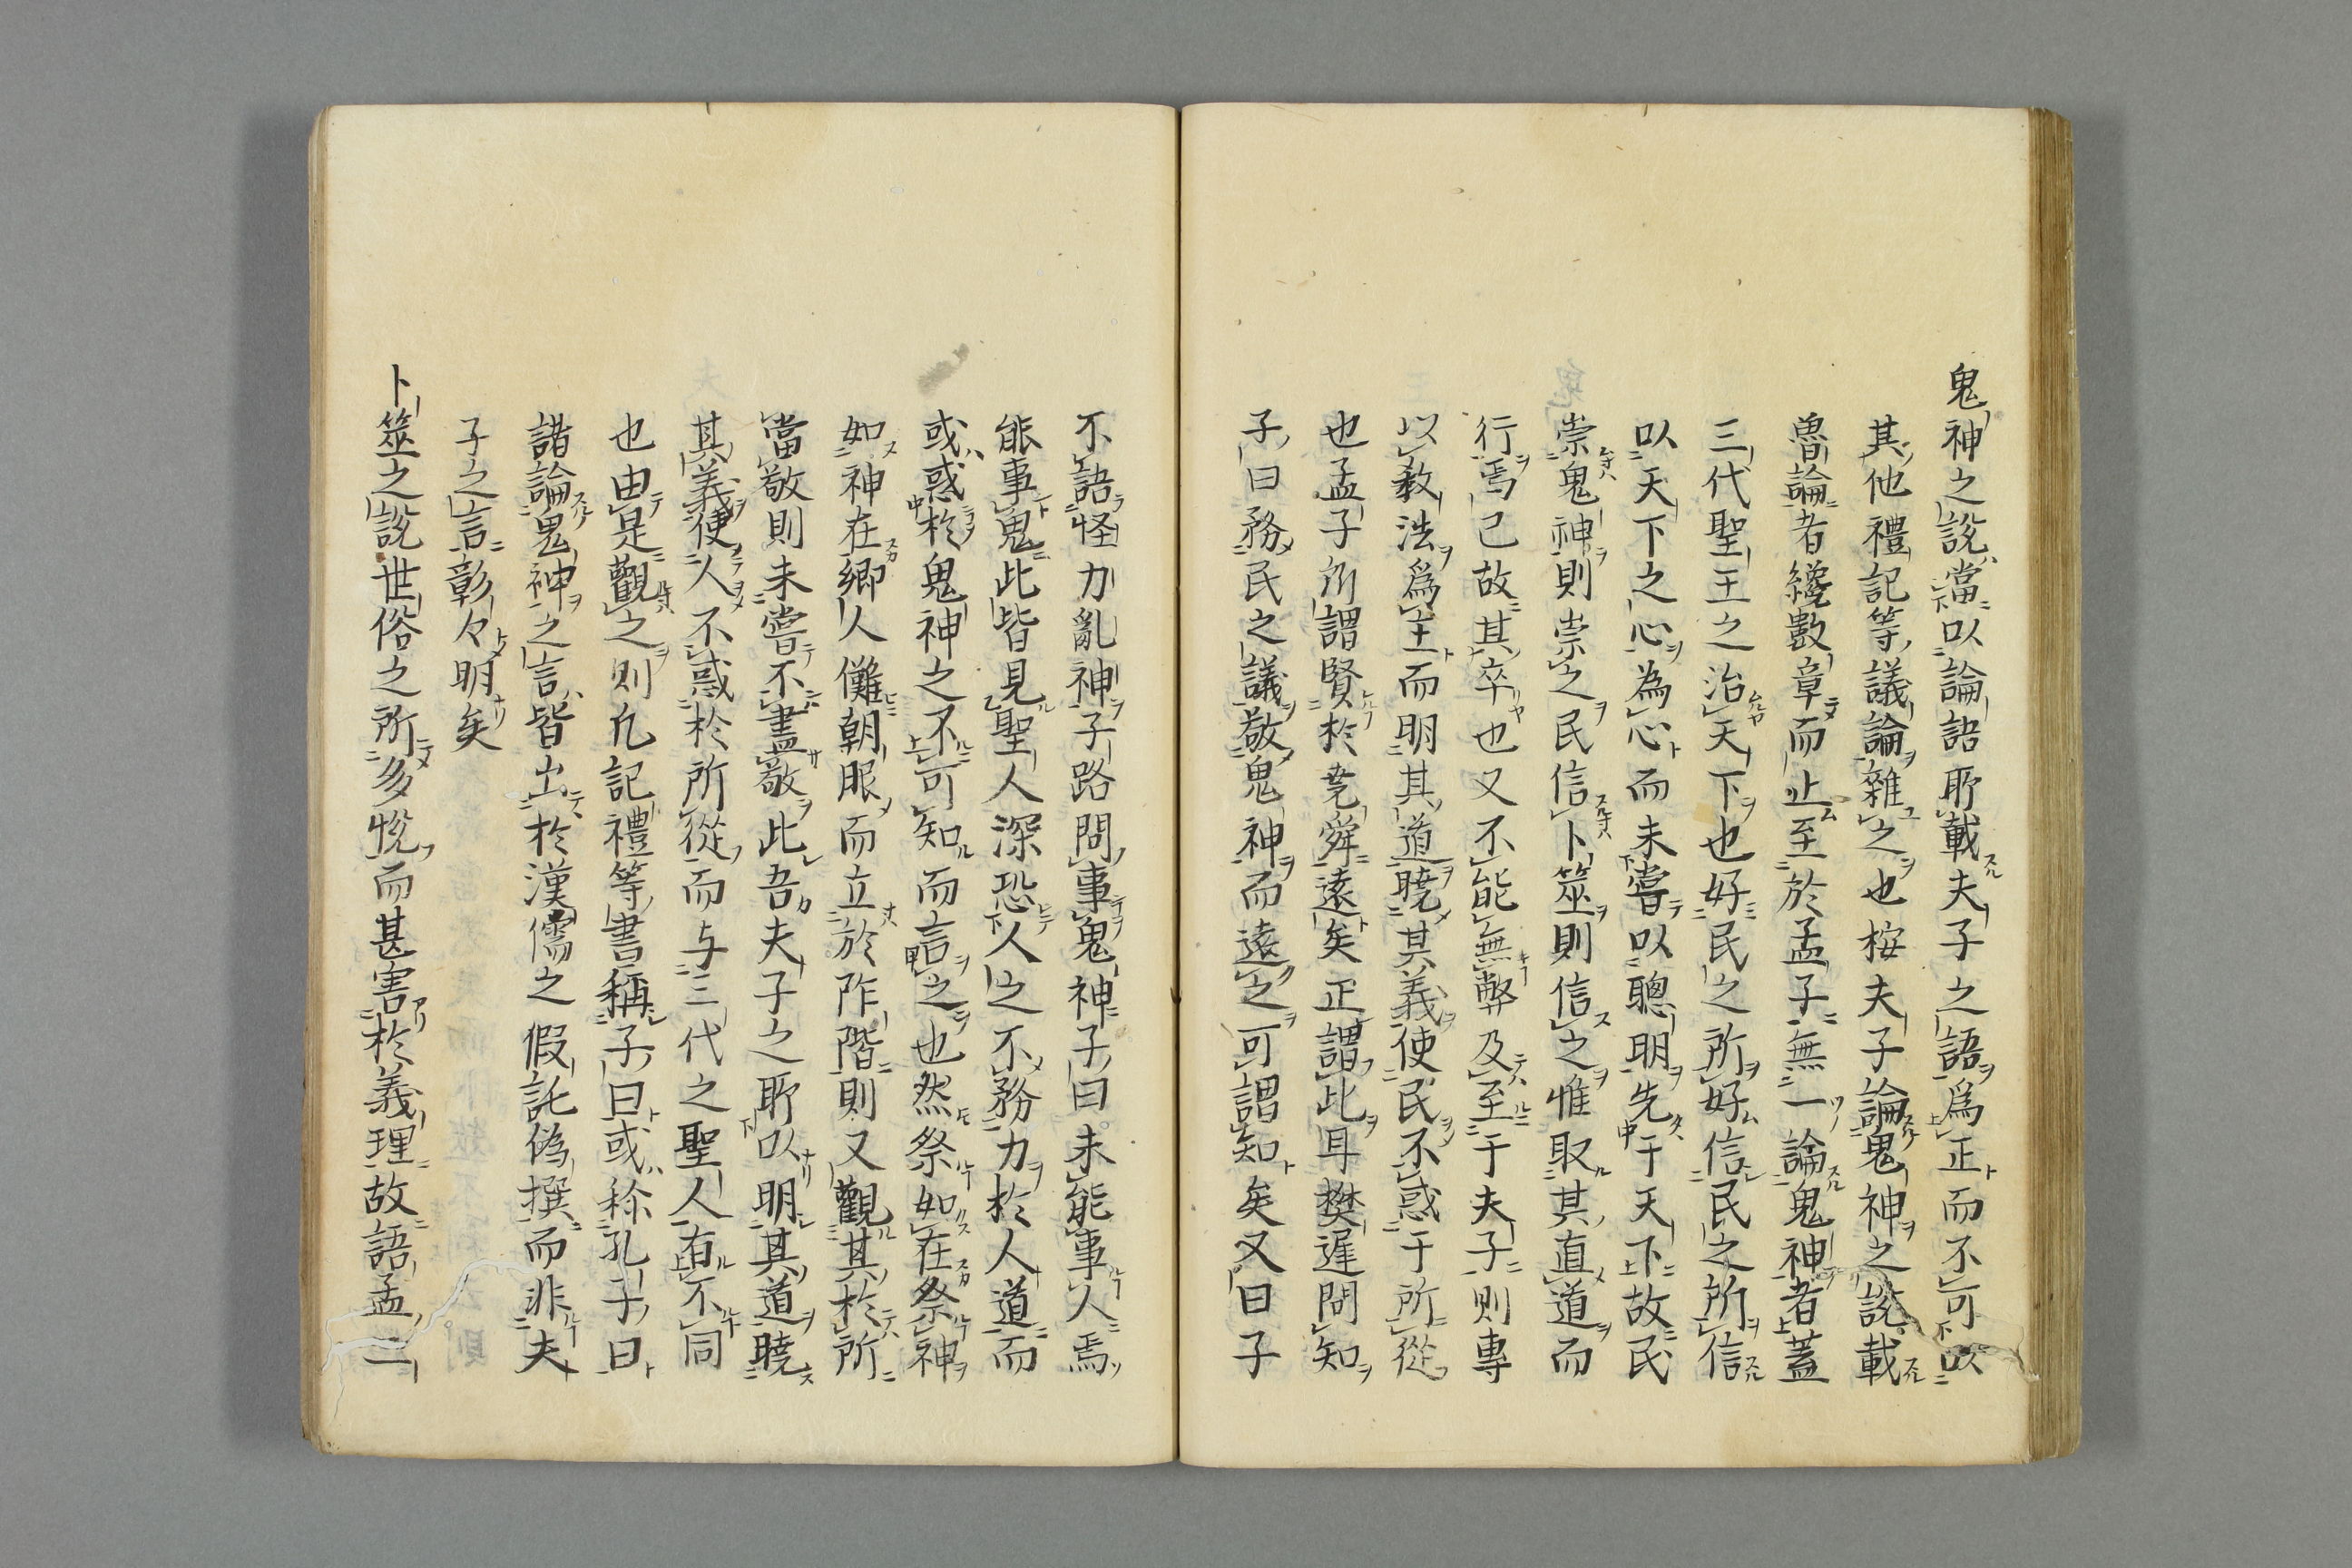 鬼神之說當以論語所載夫子之語爲正而不可以
其他禮記等議論雜之也按夫子論鬼神之說載
魯論者纔數章而止至於孟子無一論鬼神者蓋
三代聖王之治天下也好民之所好信民之所信
以天下之心為心而未嘗以聰明先于天下故民
崇鬼神則崇之民信卜筮則信之惟取其直道而
行焉已故其卒也又不能無弊及至于夫子則專
以教法爲主而明其道曉其義使民不惑于所從
也孟子所謂賢於堯舜遠矣正謂此耳樊遲問知
子曰務民之議敬鬼神而遠之可謂知矣又曰子
不語怪力亂神子路問事鬼神子曰未能事人焉
能事鬼此皆見聖人深恐人之不務力於人道而
或惑於鬼神之不可知而言之也然祭如在祭神
如神在鄉人儺朝服而立於阼階則又觀其於所
當敬則未嘗不盡敬此吾夫子之所以明其道曉
其義使人不惑於所從而与三代之聖人有不同
也由是觀之則凡記禮等書稱子曰或称孔子曰
諸論鬼神之言皆出於漢儒之假託偽撰而非夫
子之言彰々明矣
卜筮之說世俗之所多悅而甚害於義理故語孟二